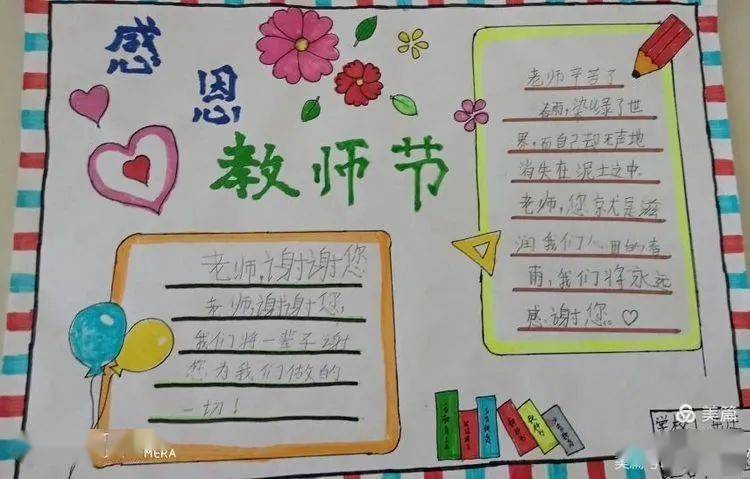 感恩
教师节
老师辛苦了
春雨,染绿了世
界,而自己却无声地
消失在泥土之中。
老师,您就是滋
润我们心田的春
雨,我们将永远
感谢您。♡
老师,谢谢您
老师,谢谢您,
我们将一辈子谢
您为我们做的
一切!
学校
美篇
MERA
美篇